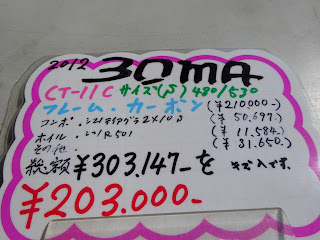 2012 BOMA
CT-11C サイズ(S) 480/530
フレーム・カーボン (¥210000-)
コンポ・シマノティアグラ2×10S (¥50.697.)
ホイル・シマノR501 (¥11.584.)
その他・ (¥31.650.)
総額¥303.147-を
¥203.000-